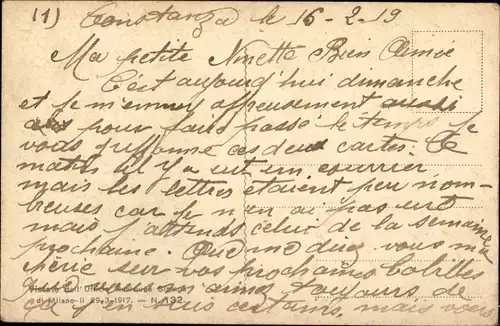 (1) Constanza le 16-2-19
Ma petite Ninette Bien Aimée
C'est aujourd'hui dimanche
et je m'ennui affreusement aussi
pour faire passé le temps je
vous griffonne ces deux cartes. Ce
matin il y a eut un courrier
mais les lettres étaient peu nom-
breuses car je n'en ai pas eut
mais j'attends celui de la semaine
prochaine. Que me direz vous ma
chérie sur vos prochaines babilles
que vous m'aimez toujours de
ça j'en suis certains, mais vous
di Milano - li 29-3-1917. - N. 132.